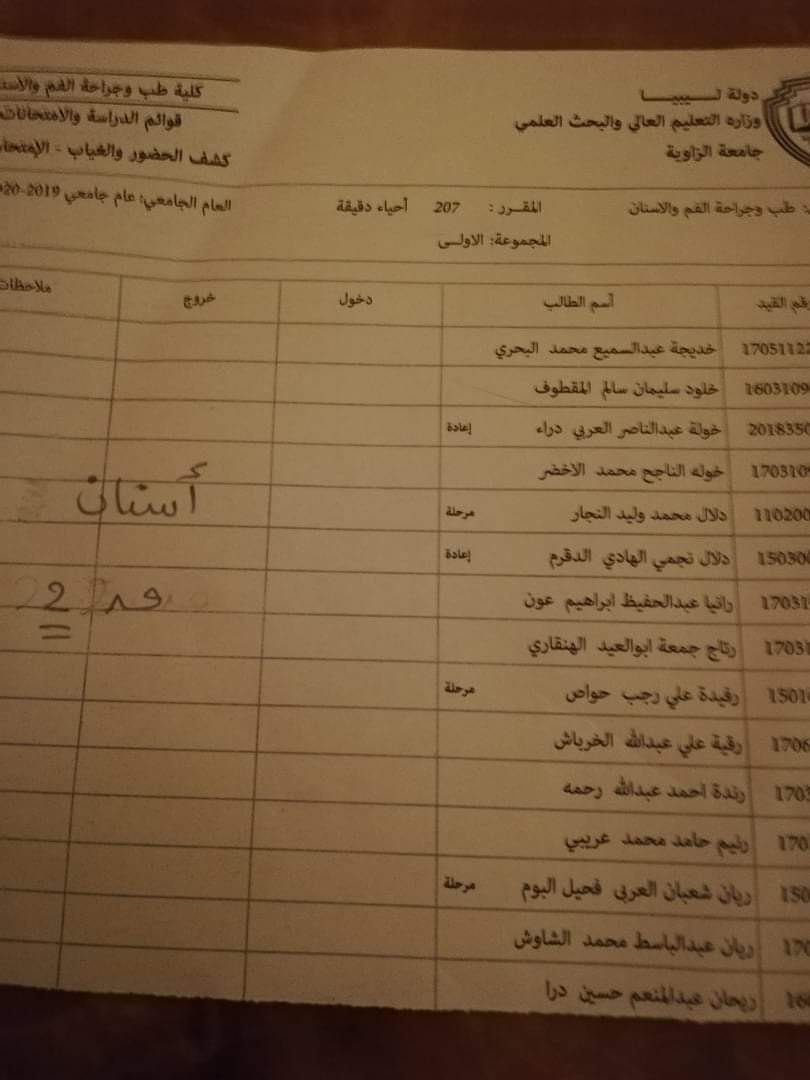 دولة لـــيبيـــا
وزاره التعليم العالي والبحث العلمي
جامعة الزاوية
كلية طب وجراحة الفم والاسنا
قوائم الدراسة والامتحانات
كشف الحضور والغياب - الإمتحا
: طب وجراحة الفم والاسنان المقـــرر : 207 أحياء دقيقة العام الجامعي: عام جامعي 2019-020
المجموعة: الاولــى
رقم القيد أسم الطالب دخول خروج ملاحظات
1705112 خديجة عبدالسميع محمد البحري
1603109 خلود سليمان سالم المقطوف
2018350 خولة عبدالناصر العربي دراء إعادة
170310 خوله الناجح محمد الاخضر
110200 دلال محمد وليد النجار مرحلة
15030 دلال نجمي الهادي الدقرم إعادة
17031 رانيا عبدالحفيظ ابراهيم عون
1703 رتاج جمعة ابوالعيد الهنقاري
1501 رفيدة علي رجب حواص مرحلة
1706 رقية علي عبدالله الخرباش
1703 رندة احمد عبدالله رحمه
170 رنيم حامد محمد عريبي
150 ريان شعبان العربى فحيل البوم مرحلة
170 ريان عبدالباسط محمد الشاوش
16 ريحان عبدالمنعم حسين درا
أسنان
2